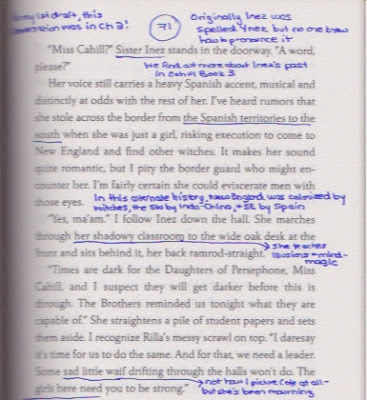 In my 1st draft, this
conversation was in Ch 2!
71
Originally Inez was
spelled Ynez, but no one knew
how to pronounce it
"Miss Cahill?" Sister Inez stands in the doorway. "A word,
please?"
We find out more about Inez's past
in Cahill Book 3
Her voice still carries a heavy Spanish accent, musical and
distinctly at odds with the rest of her. I've heard rumors that
she stole across the border from the Spanish territories to the
south when she was just a girl, risking execution to come to
New England and find other witches. It makes her sound
quite romantic, but I pity the border guard who might en-
counter her. I'm fairly certain she could eviscerate men with
those eyes.
In this alternate history, New England was colonized by
witches, the SW by Indo-China, + SE by Spain
"Yes, ma'am." I follow Inez down the hall. She marches
through her shadowy classroom to the wide oak desk at the
front and sits behind it, her back ramrod-straight.
she teaches
illusions + mind-
magic
"Times are dark for the Daughters of Persephone, Miss
Cahill, and I suspect they will get darker before this is
through. The Brothers reminded us tonight what they are
capable of." She straightens a pile of student papers and sets
them aside. I recognize Rilla's messy scrawl on top. "I daresay
it's time for us to do the same. And for that, we need a leader.
Some sad little waif drifting through the halls won't do. The
girls here need you to be strong."
not how I picture Cate at all-
but she's been mourning